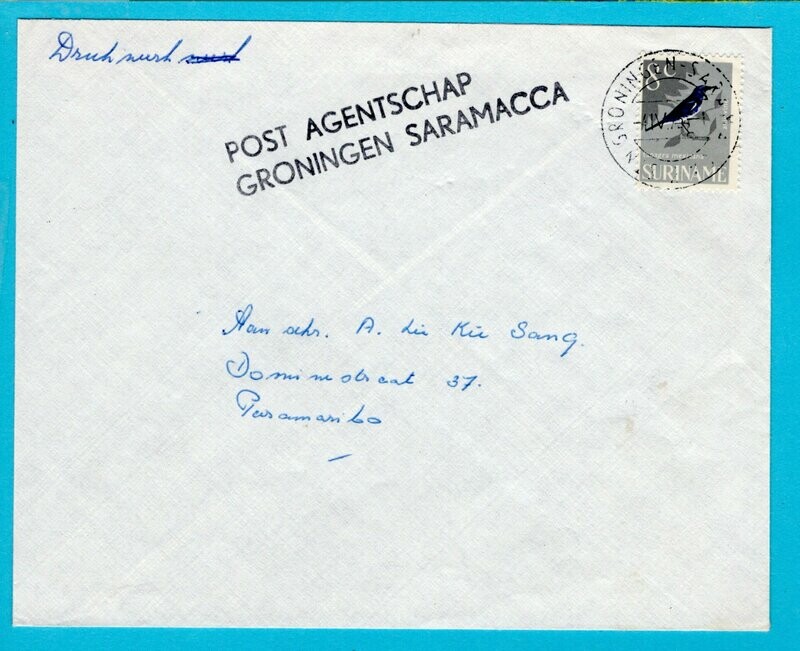 Drukwerk
POST AGENTSCHAP
GRONINGEN SARAMACCA
GRONINGEN-SARA
8c
SURINAME
Aan dhr. A. Lie Kie Sang.
Dominestraat 37.
Paramaribo